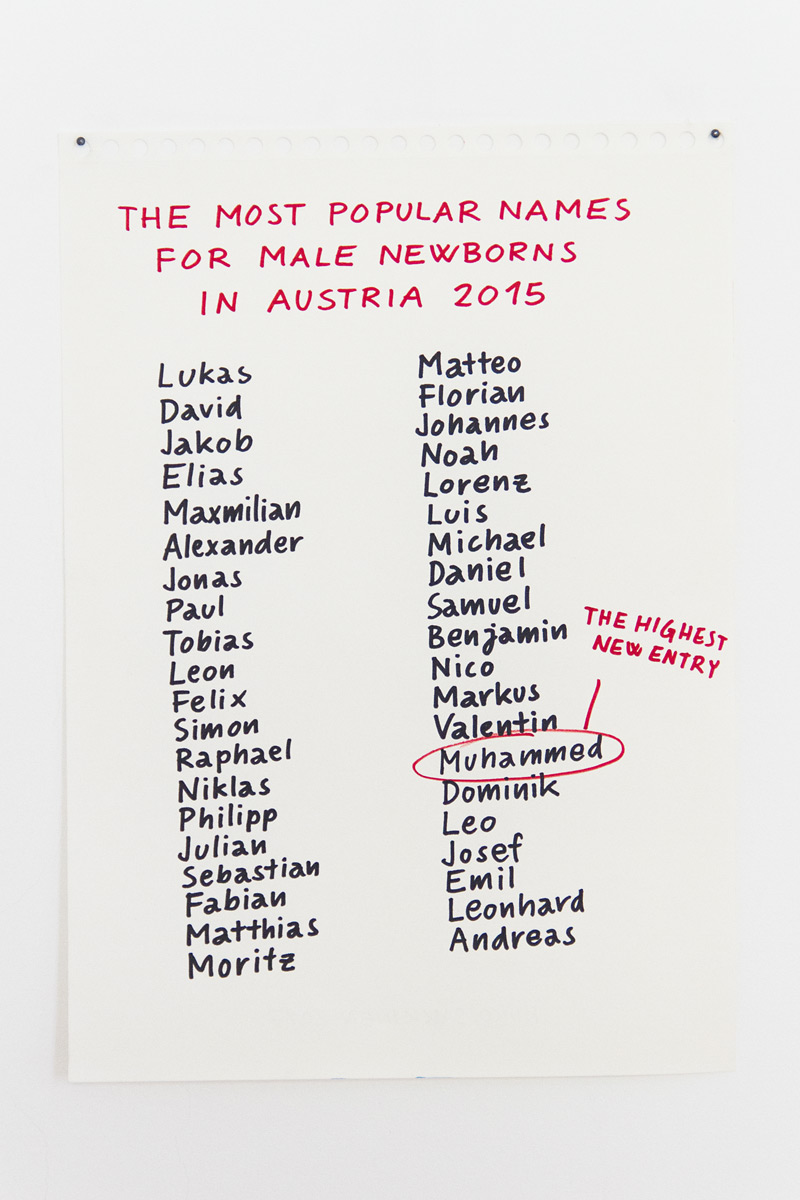 THE MOST POPULAR NAMES
FOR MALE NEWBORNS
IN AUSTRIA 2015
Lukas
David
Jakob
Elias
Maxmilian
Alexander
Jonas
Paul
Tobias
Leon
Felix
Simon
Raphael
Niklas
Philipp
Julian
Sebastian
Fabian
Matthias
Moritz
Matteo
Florian
Johannes
Noah
Lorenz
Luis
Michael
Daniel
Samuel
Benjamin
Nico
Markus
Valentin
Muhammed
Dominik
Leo
Josef
Emil
Leonhard
Andreas
THE HIGHEST
NEW ENTRY